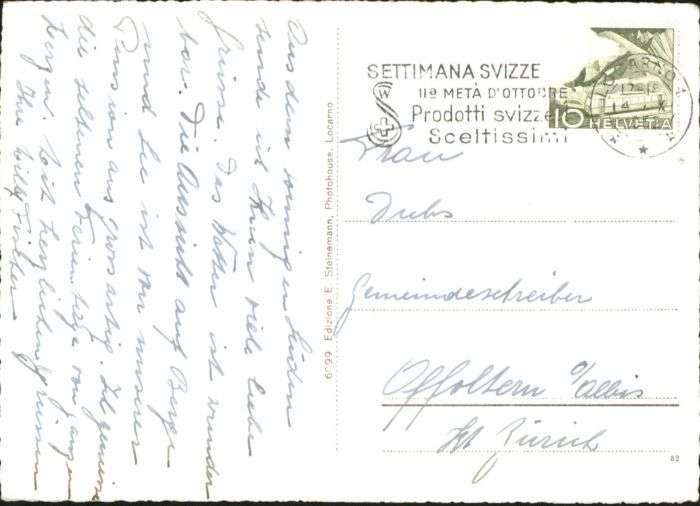 Aus dem sonnigen Süden
sende ich Ihnen viele liebe
Grüsse. Das Wetter ist wunder
bar. Die Aussicht auf Berge
und See ist von unserer
Pension aus grossartig. Ich geniesse
die seltenen Ferientage von ganzem
Herzen. Mit herzlichen Grüssen
Ihr Willy
6099 Edizione E. Steinemann, Photohouse, Locarno
SETTIMANA SVIZZE
IIª METÀ D'OTTOBRE
Prodotti svizze
Sceltissimi
LOCARNO 1
10 HELVETIA
Frau
Dubs
Gemeindeschreiber
Affoltern a/Albis
Kt Zürich
82